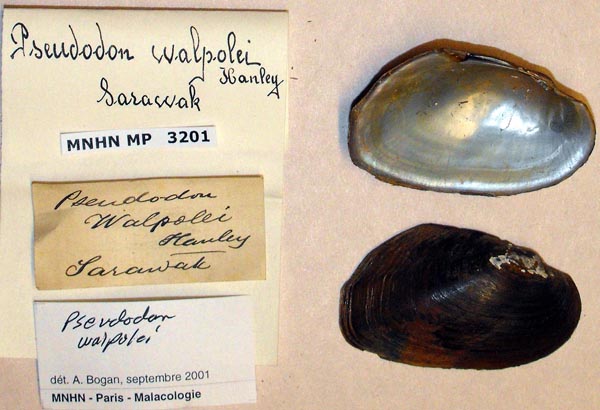 Pseudodon walpolei
Hanley
Sarawak
MNHN MP 3201
Pseudodon
Walpolei
Hanley
Sarawak
Pseudodon
walpolei
dét. A. Bogan, septembre 2001
MNHN - Paris - Malacologie